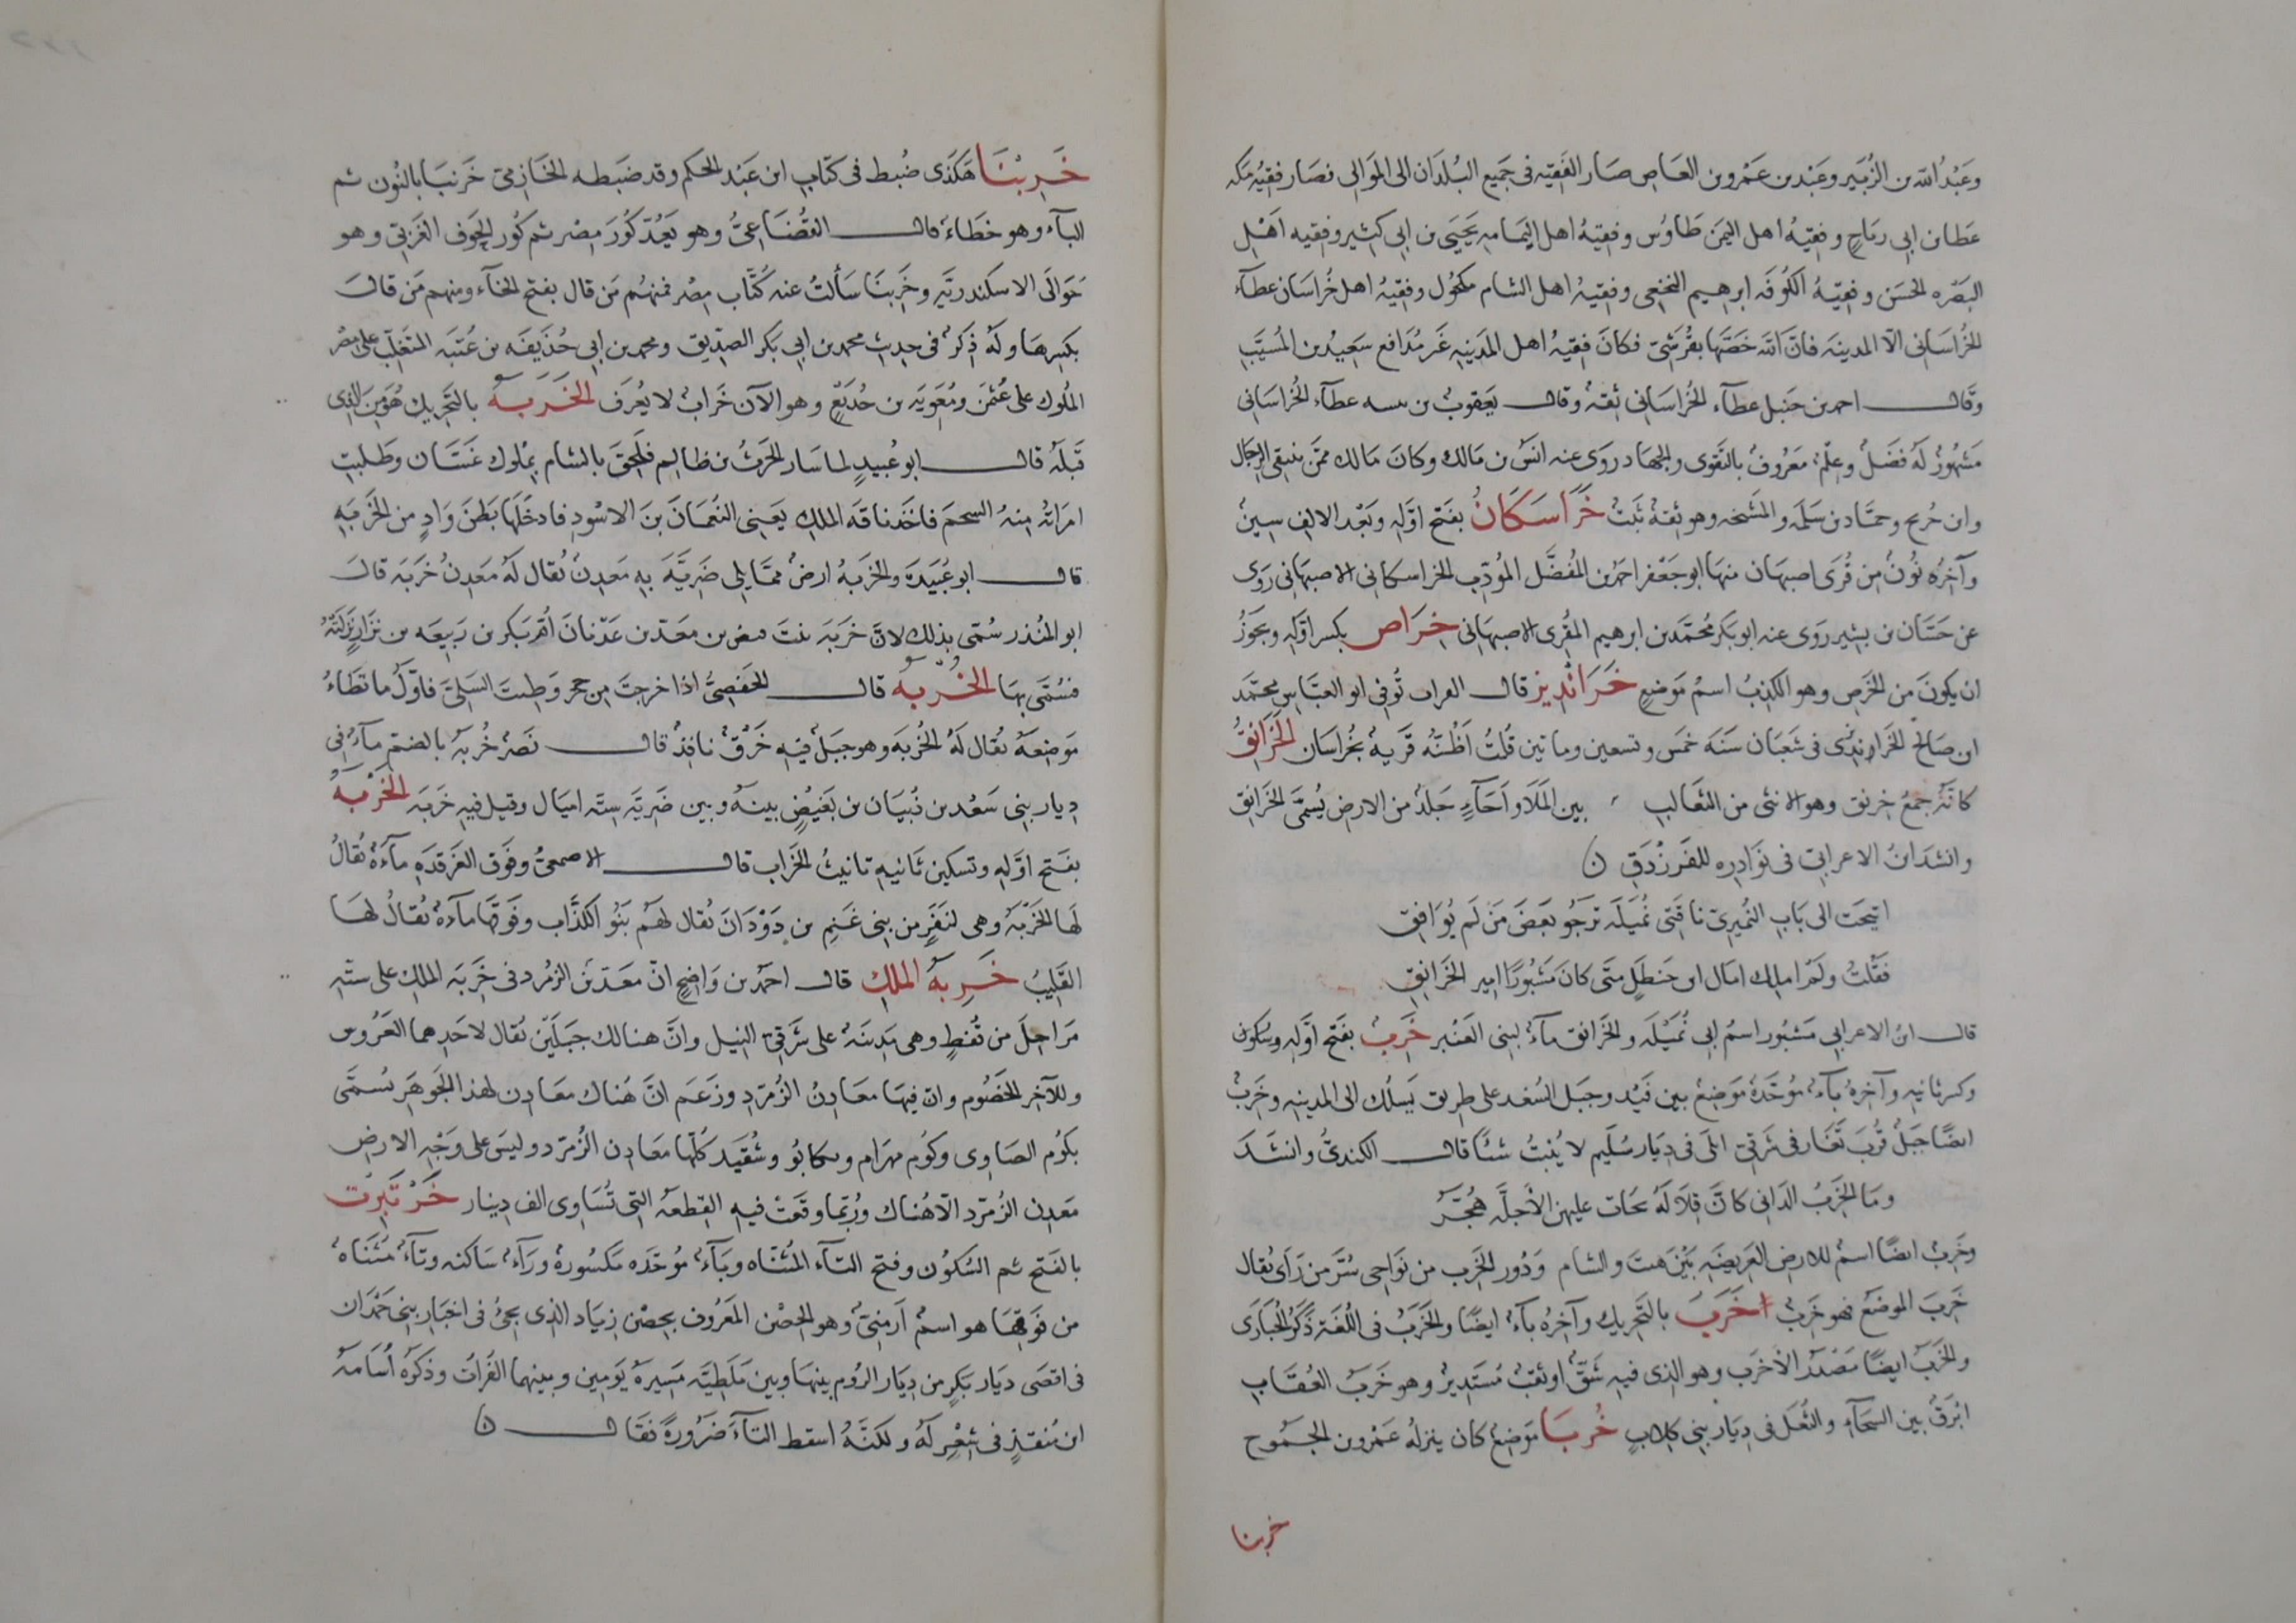 وعَبْدُ الله بن الزُبَير وعَبْد بن عَمْرو بن العاص صَار الفَقيه فى جَميع البُلدَان الى المَوالى فصَار فقيهُ مكه
عَطا بن ابى رَباحٍ وفقيهُ اهل اليمَن طَاوُس وفقيهُ اهل اليَمامه يَحيَى بن ابى كثير وفقيه اَهْل
البَصْره الحسَن وفقيهُ الكُوفَه ابرهيم النخعى وفقيهُ اهل الشام مكحُول وفقيهُ اهل خُراسَان عطَآء
الخُراسَانى الّا المدينه فانّ الله خصّها بقُرَشىّ فكانَ فقيهُ اهل المدينه غَير مُدَافع سَعِيدُ بن المُسَيَّب
وقال احمد بن حَنبل عطآء الخُراسَانى ثقةٌ وقال يعقوبُ بن شيبه عطآء الخُراسَانى
مَشهُورٌ لهُ فضلٌ وعِلمٌ مَعرُوفٌ بالتَقوى والجهَاد رَوى عنه انَسُ بن مَالك وكانَ مَالك ممّن ينتقى الرجَال
وابن جُريج وحمّاد بن سَلَمه والمشيخه وهو ثقةٌ ثَبتٌ خَرَاسَكَانُ بفتح اوّلِه وبَعْد الالِف سينٌ
وآخرُه نُونٌ مِن قُرَى اصبهَان منهَا ابو جَعْفر احمدُ بن المُفضَّل المُودّب الخراسكانى الاصبهَانى رَوَى
عن حَسّان بن بشير رَوَى عنه ابو بكر مُحمّد بن ابرهيم المقرى الاصبهَانى خِرَاص بكسر اوّلهِ ويجَوزُ
ان يكونَ مِن الخَرصِ وهو الكذِبُ اسمُ مَوضِعٍ خَرَانْدِيز قال العراب تُوفى ابو العبَّاسِ محمّد
ابن صَالح الخَراندْيزى فى شَعبَان سَنَه خمَس وتسعين وماتين قُلتُ اَظُنّهُ قَريهٌ بخُراسَان الخَرَانِقُ
كانّهُ جمعُ خِرنق وهو الانثى من الثعَالب بين المَلَا واَجَآءٍ جَلدٌ من الارض يُسمَّى الخَرَانق
وانشدَ ابنُ الاعرابىّ فى نوَادِره للفَرَزْدَقِ ن
انيخت الى بَابِ النُميرىّ ناقتى نُميَله ترجُو بَعضَ مَن لَم يُوَافِق
فقلتُ ولَمْ املِك امَال ابن حَنظل متَى كانَ مَشبُورًا امير الخرَانِقِ
قال ابنُ الاعرابى مَشبُور اسمُ ابى نُمَيْلَه والخَرانق مآءٌ لبنى العَنْبر خَرِبُ بفَتح اوّلهِ وسكُون
وكسر ثانِيه وآخرهُ بآءٌ مُوحَّدة مَوضِعٌ بين فَيْد وجبَل السُعْد على طريق يَسلُك الى المدينه وخَربُ
ايضًا جَبلٌ قُربَ تعَار فى شَرقى ابلَى فى دِيَار سُلَيم لا يُنبتُ شئًا قال الكندىُّ وانشدَ
ومَا الخَرِبُ الدَانى كانَّ قِلَالَهُ بخَات عليهن الاجلّه هُجّر
وخَرِبُ ايضًا اسمٌ للارض العَريضَه بَيْن هيت والشام ودُور الخَرِب من نوَاحى سُرَّ من رَاَى يُقال
خَرِبَ الموضعُ فهو خَرِبٌ خَرَبَ بالتَحرِيك وآخرهُ بآءٌ ايضًا والخَرَبُ فى اللُغه ذَكَرُ الحُبَارَى
والخَرَبُ ايضًا مَصْدَرُ الاَخرَب وهو الذى فيه شَقٌ او ثقبٌ مُسْتَدِيرٌ وهو خَرَبُ العُقَابِ
ابْرَقُ بين السَجآءِ والثُعَل فى دِيَار بَنى كِلابٍ خُرْبَا مَوضِعٌ كان ينزلهُ عَمْرو بن الجَمُوح
خربنا
خَرِبْنَا هَكَذَى ضُبط فى كتَاب ابن عَبْد الحَكم وقد ضَبَطه الحَازِمىّ خَرنبَا بالنُون ثم
البآء وهو خطَاءٌ قال القُضَاعىُّ وهو يَعُدّ كُورَ مِصْر ثم كُور الحوَف الغَربىّ وهو
حَوالَى الاسكندريّهِ وخَرِبنَا سَألتُ عنه كُتّاب مِصر فمنهُم مَن قال بفتح الخآء ومنهم مَن قالَ
بكسِرهَا ولهُ ذِكرٌ فى حدِيث محمد بن ابى بكر الصِدّيق ومحمد بن ابى حُذَيفَه بن عُتبَه المتغلّب على مصْر
المُلوك على عُثمٰن ومُعٰويَه بن حُدَيجٍ وهو الآن خَرابٌ لا يُعرَف الخَرَبَةُ بالتَحرِيك هو مِن الذى
قبلَهُ قال ابو عُبيدٍ لما سَار الحَرثُ بن ظالِم فلَحِقَ بالشام بمُلوك غسّان وطَلبتِ
امرَاتهُ مِنهُ الشحمَ فاخَذ ناقَه المَلِكِ يعنى النعمَانَ بنَ الاسْود فادخَلَها بَطنَ وَادٍ من الخَرَبَهِ
قال ابو عُبَيدَةَ والخَرَبهُ ارضٌ ممّا يلى ضَرِيَّه بِهِ مَعدِنٌ يُقال لَهُ مَعدِنُ خَرَبَه قالَ
ابو المُنذر سُمّى بذلك لانّ خَرَبَه بنتَ قنص بن مَعدّ بن عَدنانَ اُمّ بكر بن رَبِيعَه بن نزَارٍ نزَلتْهُ
فسُمّى بهَا الخُرْبَهُ قال الحَفصىُّ اذا خرجتَ مِن حجر وَطِيتَ السُلَىّ فاوّلُ ما تطَاءُ
مَوضِعهُ يُقال لَهُ الخُربَه وهو جبَلٌ فيهِ خَرْقٌ نافِذٌ قال نَصْرٌ خُربَهُ بالضم مآءٌ فى
دِيار بنى سَعْد بن ذُبيَان بن بَغيضٍ بينَهُ وبين ضَرِيّه ستّه اميَال وقيل فيهِ خَرَبَه الخَرْبَهُ
بفتح اوّلِهِ وتسكين ثانِيهِ تانيثُ الخَرَاب قال الاصمعىُّ وفَوق الغرقدَهِ مآءَةٌ يُقالُ
لهَا الخَرْبَهُ وهى لنَفَرٍ من بنى غَنمِ بن دَوْدَان يُقال لهُم بَنُو الكَذّاب وفَوقهَا مآءَةٌ يُقالُ لهَا
القَلِيبُ خَرِبَةُ المَلِكِ قال احمدُ بن وَاضحٍ انّ مَعدن الزمُرد فى خَرِبَه المَلِك على ستّهِ
مَراحِلَ من قُفطٍ وهى مَدِينَهٌ على شَرقىّ النِيل وانَّ هنالك جبَلَيْن يُقال لاحدِهما العَرُوس
وللآخر الخَصُوم وانّ فيهَا معادِنُ الزُمرّدِ وزَعَم انّ هُناك معَادِن لهذا الجَوهَر تُسمّى
بكَوُم الصَاوِى وكوُم مهرَام ومكابُو وشُقَيد كلّهَا معَادِن الزُمرّد وليسَ على وَجْهِ الارض
مَعدِن الزُمرّد الّا هُنَاك ورُبّما وقعَتْ فيهِ القِطعَه التى تُسَاوى الف دِينار خَرْتَبِرْت
بالفَتح ثم السُكوُن وفتح التآء المُثنّاه وبآءٌ مُوحّده مَكسُورةٌ ورآءٌ سَاكنه وتآءٌ مُثنَاةٌ
من فَوقهَا هو اسمٌ اَرمنىٌّ وهو الحِصْن المَعرُوف بحِصْن زِيَاد الذى يجئُ فى اخبَار بنى حمْدَان
فى اقصَى دِيَار بَكرٍ من دِيَار الرُوم بينهَا وبين مَلَطِيَّه مَسِيرةُ يَومين وبينهما الفُرَاتُ وذَكرهُ اُسَامَه
ابن مُنقذٍ فى شِعْرٍ لَهُ ولكنّهُ اسقط التآءَ ضَرُورةً فقال ن